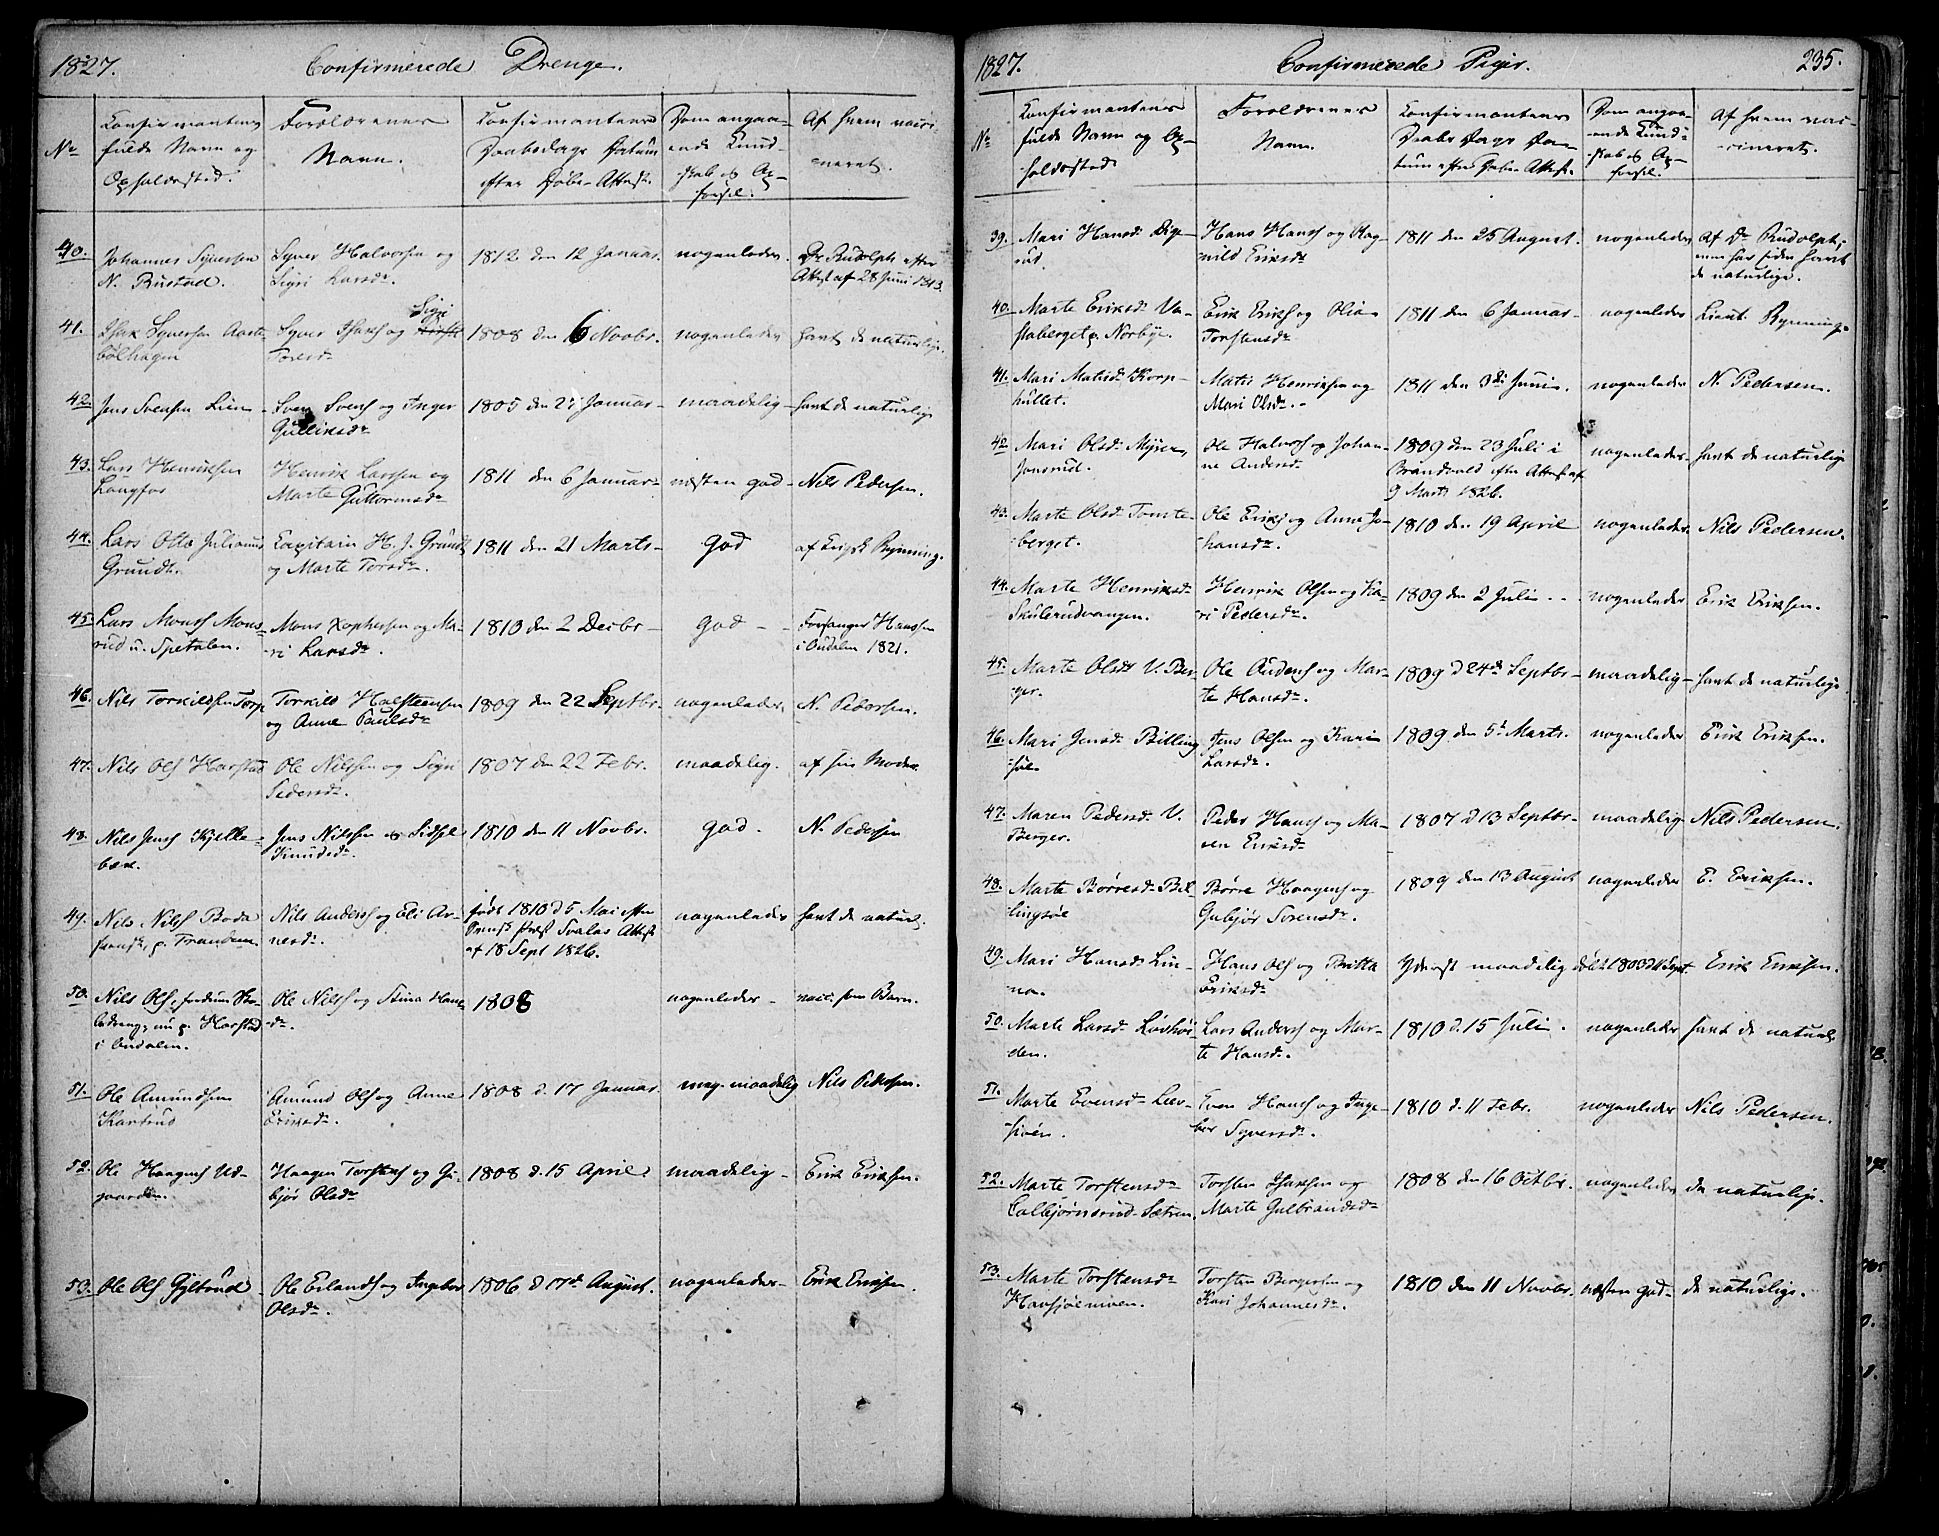 1827. Confirmerede Drenge.
No
Confirmantens fulde Navn og Opholdssted.
Forældrenes Navn.
Confirmantens Daabsdags Datum efter Døbe-Attest.
Dom angaaende Kundskab og Opførsel.
Af hvem vaccineret.
40. Johannes Syversen N. Rustad.
Syver Halvorsen og Sigri Larsdr.
1812 den 12 Januar.
nogenledes.
Dr Rudolph efter Attest af 28 Juni 1813.
41. Isak Syversen
Syver Isaks og Sigri Toresd
1808 den 6 Novbr.
nogenledes
havt de naturlige.
42. Jens Svensen Lien
Sven Svens og Inger Gulliksdr
1805 den 27 Januar
maadelig
havt de naturlige
43. Lars Henriksen Langfos
Henrik Larssen og Marte Guttormsdr
1811 den 6 Januar
næsten god
Nils Pedersen.
44. Lars Otto Julianus Grundt.
Capitain H. J. Grundt og Marte Torsdr.
1811 den 21 Marts
God
af Rynning.
45. Lars Mons Monsrud u. Spetalen.
Mons Xophersen og Mari Larsdr.
1810 den 2 Decbr
God
Forsanger Hanssen i Oudalen 1821.
46. Nils Torkildsen Torp
Torkild Halsteensen og Anne Paulsdr
1809 den 22 Septbr.
nogenledes.
N. Pedersen.
47. Nils Ols Harstad
Ole Nilssen og Sigri Pedersd.
1807 den 22 Febr.
maadelig.
af sin Moder.
48. Nils Jens Kjellebæk.
Jens Nilssen og Sidsel Knudsdr.
1810 den 11 Novbr.
God.
N. Pedersen
49. Nils Nils p. Trandem
Nils Anders og Eli Arnesdr.
født 1810 d 5 Mai efter Attest af 18 Sept 1826.
nogenledes
havt de naturl.
50. Nils Ols, nu p. Harstad i Oudalen.
Ole Nilss og Stina Hansdr.
1808
nogenledes
vacc. som Barn.
51. Ole Amundsen Kartrud
Amund Ols og Anne Eriksdr.
1808 d. 17 Januar
meg. maadelig
Nils Pedersen.
52. Ole Haagens Udgaarden.
Haagen Torstens og Gubjør Olsdr
1808 d. 15 April
maadelig
Erik Eriksen.
53. Ole Ols Gjiltrud
Ole Erlands og Ingebor Olsdr.
1806 d 17d August.
nogenledes
Erik Eriksen
1827. Confirmerede Piger. 235.
No
Confirmantens fulde Navn og Opholdssted
Forældrenes Navn.
Confirmantens Daabs Dags Datum efter Døbe-Attest.
Dom angaaende Kundskab og Opførsel.
Af hvem vaccineret.
39. Mari Hansdr Digerud.
Hans Hans og Ragnild Eriksdr
1811 den 25 August.
nogenledes
Af Dr Rudolph, men har siden havt de naturlige.
40. Marte Eriksdr Vastaberget p. Norbye.
Erik Eriks og Olia Torstensdr
1811 den 6 Januar
nogenledes
Lieut. Rynning.
41. Mari Matisdr Korphullet.
Matis Henriksen og Mari Olsdr.
1811 den 3die Junii.
nogenledes
N. Pedersen.
42. Mari Olsdr Myren, Jonsrud.
Ole Halvors og Johanne Andersd
1809 den 23 Juli i Brandvold efter Attest af 9 Marts 1826.
nogenledes
havt de naturlige
43. Marte Olsdr Tomteberget.
Ole Eriks og Anne Johansdr.
1810 den 19 April
nogenledes
Nils Pedersen.
44. Marte Henriksdr Skulerudvangen.
Henrik Olsen og Kari Pedersdr.
1809 den 2 Julii
nogenledes
Erik Eriksen.
45. Marte Olsdr V. Berger.
Ole Anders og Marte Hansdr.
1809 d 24de Septbr
maadelig
havt de naturlige
46. Mari Jensdr Billingsøe
Jens Olsen og Kari Larsdr.
1809 den 5t Marts.
nogenledes
Erik Eriksen.
47. Maren Pedersdr V. Berger.
Peder Hans og Maren Eriksdr
1807 d 13 Septbr
maadelig
Nils Pedersen.
48. Marte Børresdr Billingsøe
Børre Haagens og Gubjør Sorensdr.
1809 den 13 August
nogenledes
E. Eriksen.
49. Mari Hansdr Linna.
Hans Ols og Britta Eriksdr
Yderst maadelig døbt 1803 d Sept
Erik Eriksen.
50. Marte Larsdr Løvhøiden.
Lars Anders og Marte Hansdr.
1810 d. 15 Juli.
nogenledes
havt de naturl.
51. Marte Evensdr
Even Hans og Ingebor Syversdr.
1810 d. 11 Febr.
nogenledes
Nils Pedersen.
52. Marte Torstensdr Colbjørnsrud-Sætren
Torsten Isaksen og Marte Gulbrandsdr
1808 den 16 Octbr.
nogenledes
de naturlige.
53. Marte Torstensdr
Torsten Bergersen og Kari Johannesdr.
1810 den 11 Novbr.
næsten god
de naturlige.